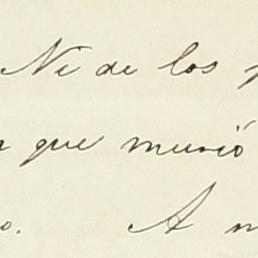 Ni de los
que murió
o. A